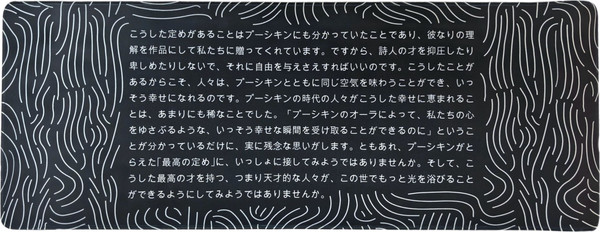 こうした定めがあることはプーシキンにも分かっていたことであり、彼なりの理
解を作品にして私たちに贈ってくれています。ですから、詩人の才を抑圧したり
卑しめたりしないで、それに自由を与えさえすればいいのです。こうしたことが
あるからこそ、人々は、プーシキンとともに同じ空気を味わうことができ、いっ
そう幸せになれるのです。プーシキンの時代の人々がこうした幸せに恵まれるこ
とは、あまりにも稀なことでした。「プーシキンのオーラによって、私たちの心
をゆさぶるような、いっそう幸せな瞬間を受け取ることができるのに」というこ
とが分かっているだけに、実に残念な思いがします。ともあれ、プーシキンがと
らえた「最高の定め」に、いっしょに接してみようではありませんか。そして、こ
うした最高の才を持つ、つまり天才的な人々が、この世でもっと光を浴びること
ができるようにしてみようではありませんか。